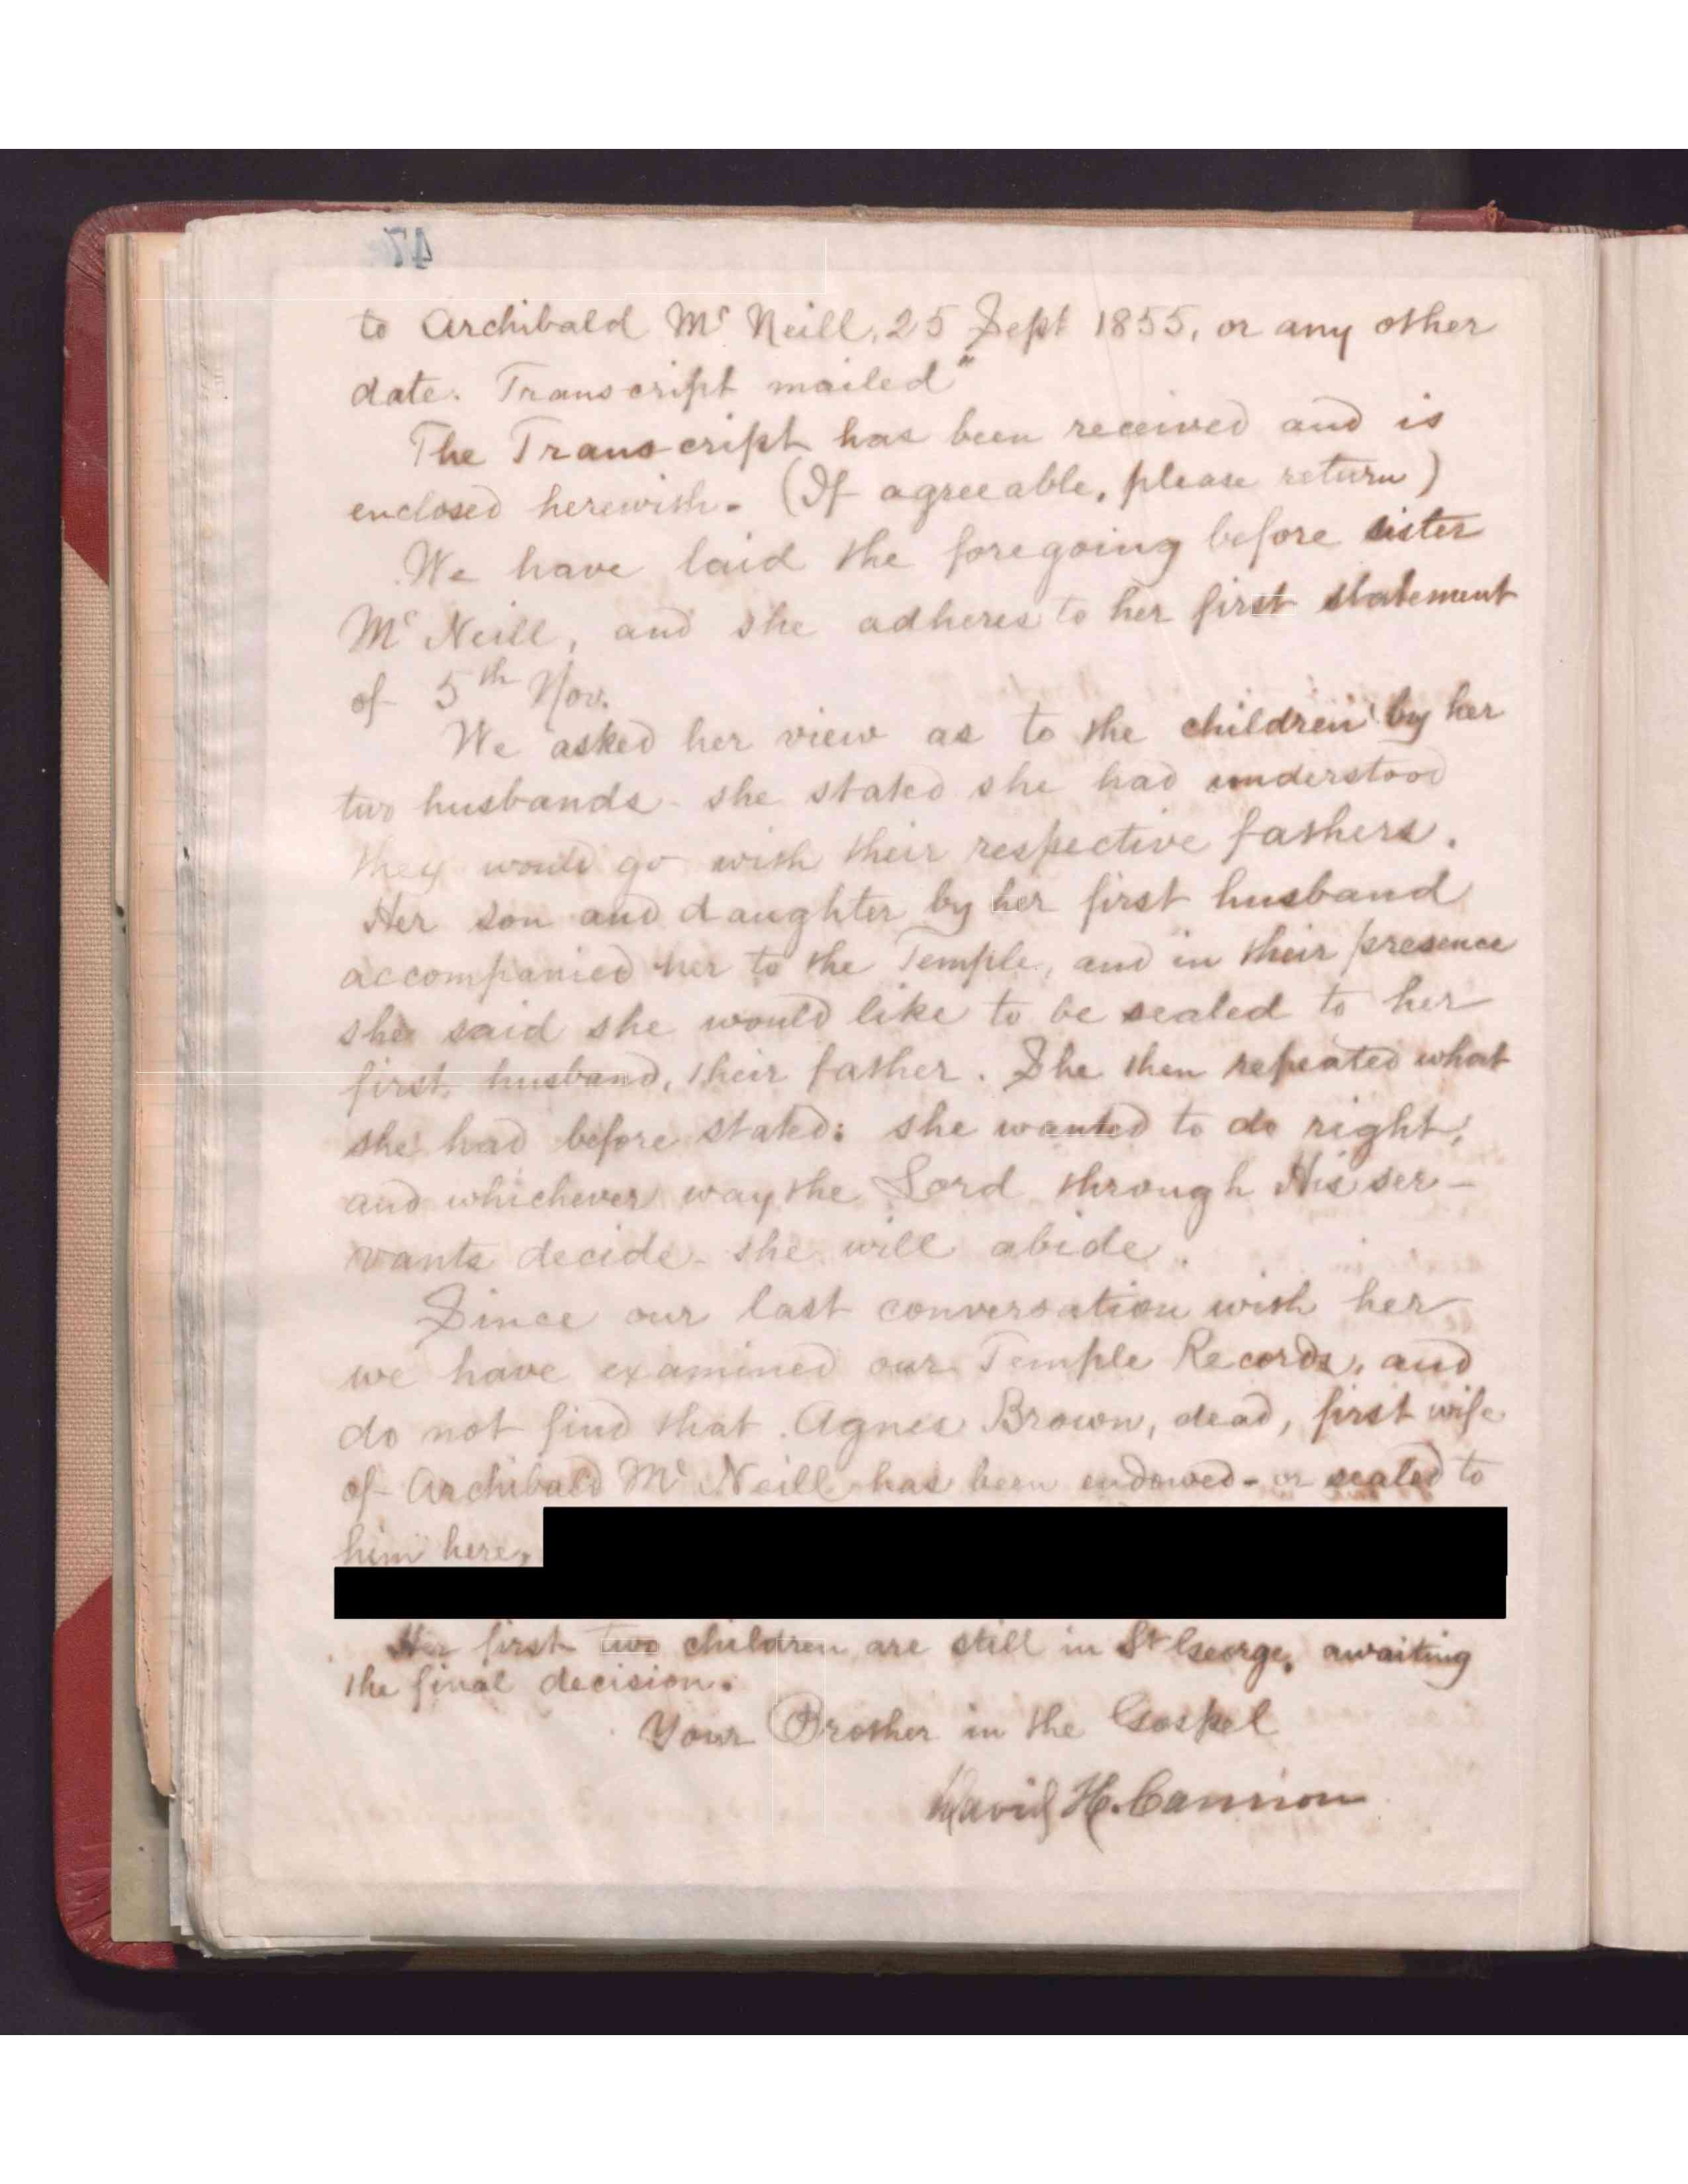 47
to Archibald Mc Neill, 25 Sept 1855, or any other
date. Transcript mailed"
The Transcript has been received and is
enclosed herewith. (If agreeable, please return)
We have laid the foregoing before sister
Mc Neill, and she adheres to her first statement
of 5th Nov.
We asked her view as to the children by her
two husbands - she stated she had understood
they would go with their respective fathers.
Her son and daughter by her first husband
accompanied her to the Temple, and in their presence
she said she would like to be sealed to her
first husband, their father. She then repeated what
she had before stated: she wanted to do right,
and whichever way the Lord through His ser-
vants decide - she will abide.
Since our last conversation with her
we have examined our Temple Records, and
do not find that Agnes Brown, dead, first wife
of Archibald Mc Neill has been endowed - or sealed to
him here.
Her first two children are still in St George, awaiting
the final decision.
Your Brother in the Gospel
David H. Cannon